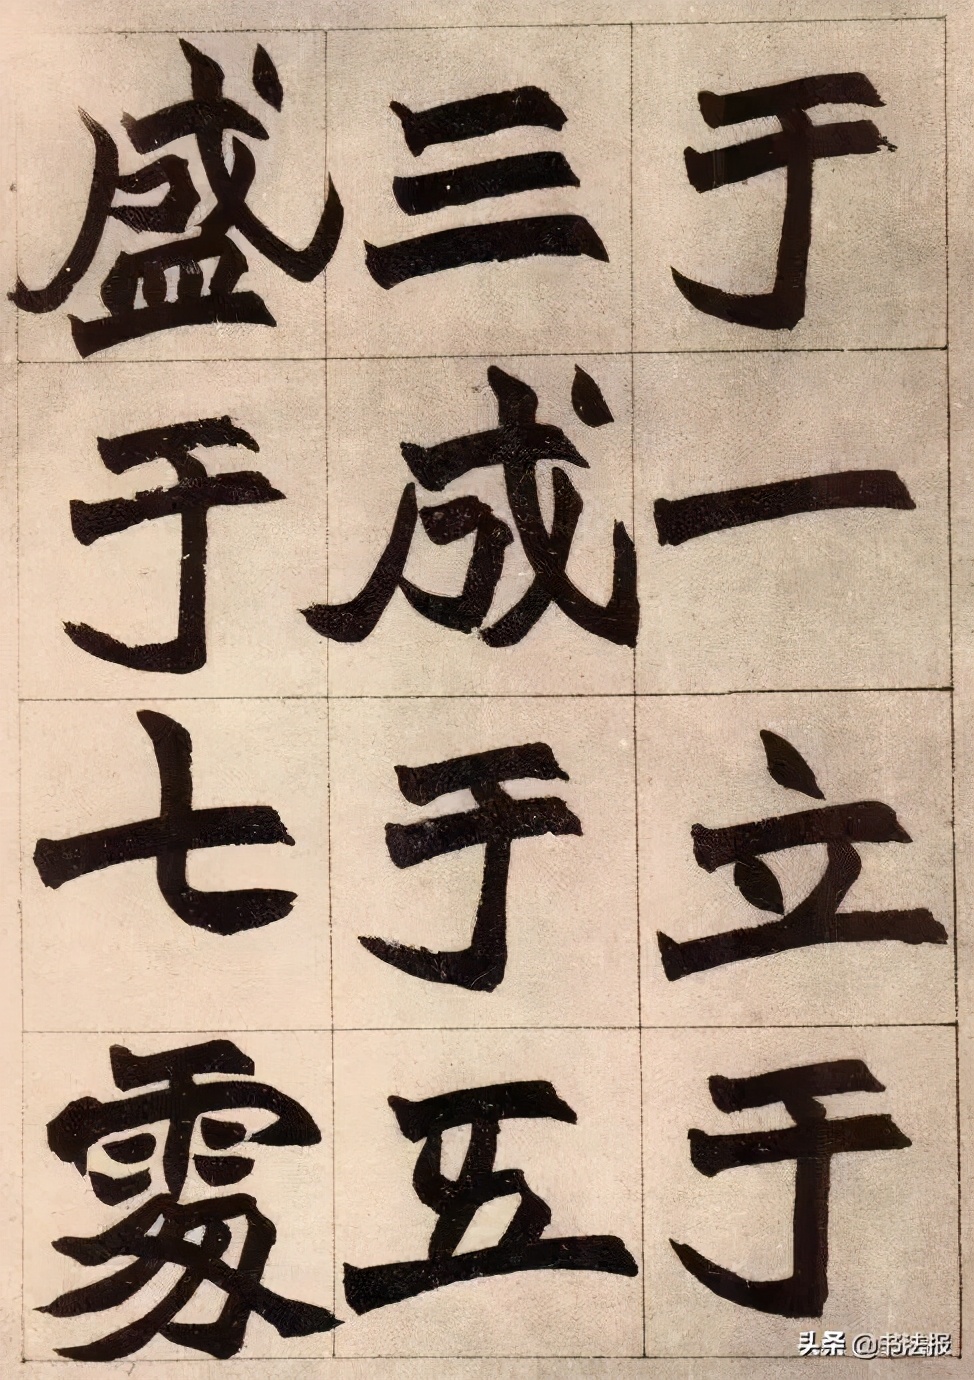 于一立于
三成于五
盛于七處
头条 @书法报